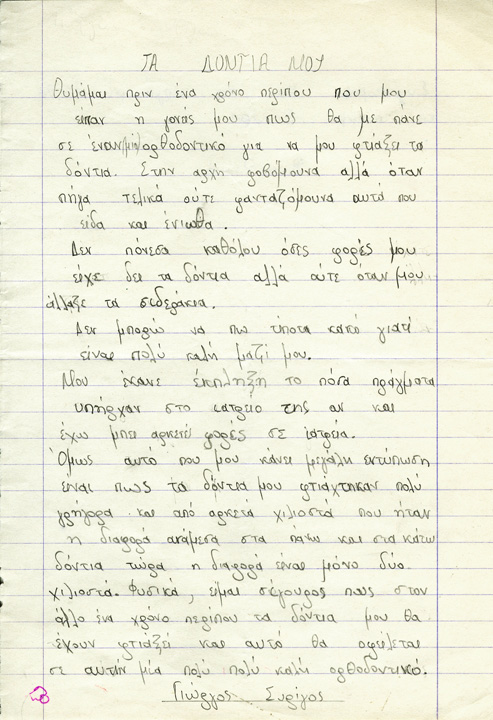 ΤΑ ΔΟΝΤΙΑ ΜΟΥ
Θυμάμαι πριν ένα χρόνο περίπου που μου
είπαν η γονείς μου πως θα με πάνε
σε έναν(μία)ορθοδοντικό για να μου φτιάξει τα
δόντια. Στην αρχή φοβόμουνα αλλά όταν
πήγα τελικά ούτε φανταζόμουνα αυτά που
είδα και ένιωθα.
Δεν πόνεσα καθόλου όσες φορές μου
είχε δει τα δόντια αλλά ούτε όταν μου
άλλαξε τα σιδεράκια.
Δεν μπορώ να πω τίποτα κακό γιατί
είναι πολύ καλή μαζί μου.
Μου έκανε έκπληξη το πόσα πράγματα
υπήρχαν στο ιατρείο της αν και
έχω μπει αρκετές φορές σε ιατρεία.
Όμως αυτό που μου κάνει μεγάλη εντύπωση
είναι πως τα δόντια μου φτιάχτηκαν πολύ
γρήγορα και από αρκετά χιλιοστά που ήταν
η διαφορά ανάμεσα στα πάνω και στα κάτω
δόντια τώρα η διαφορά είναι μόνο δύο
χιλιοστά. Φυσικά, είμαι σίγουρος πως στον
άλλο ένα χρόνο περίπου τα δόντια μου θα
έχουν φτιάξει και αυτό θα οφείλεται
σε αυτήν μία πολύ πολύ καλή ορθοδοντικό.
Γιώργος Συρίγος